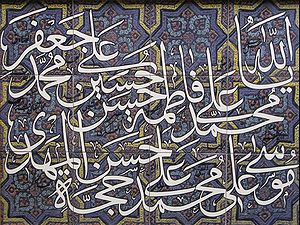 يا الله محمد على فاطمة حسن حسين على محمد جعفر
موسى على محمد على حسن حجة المهدى